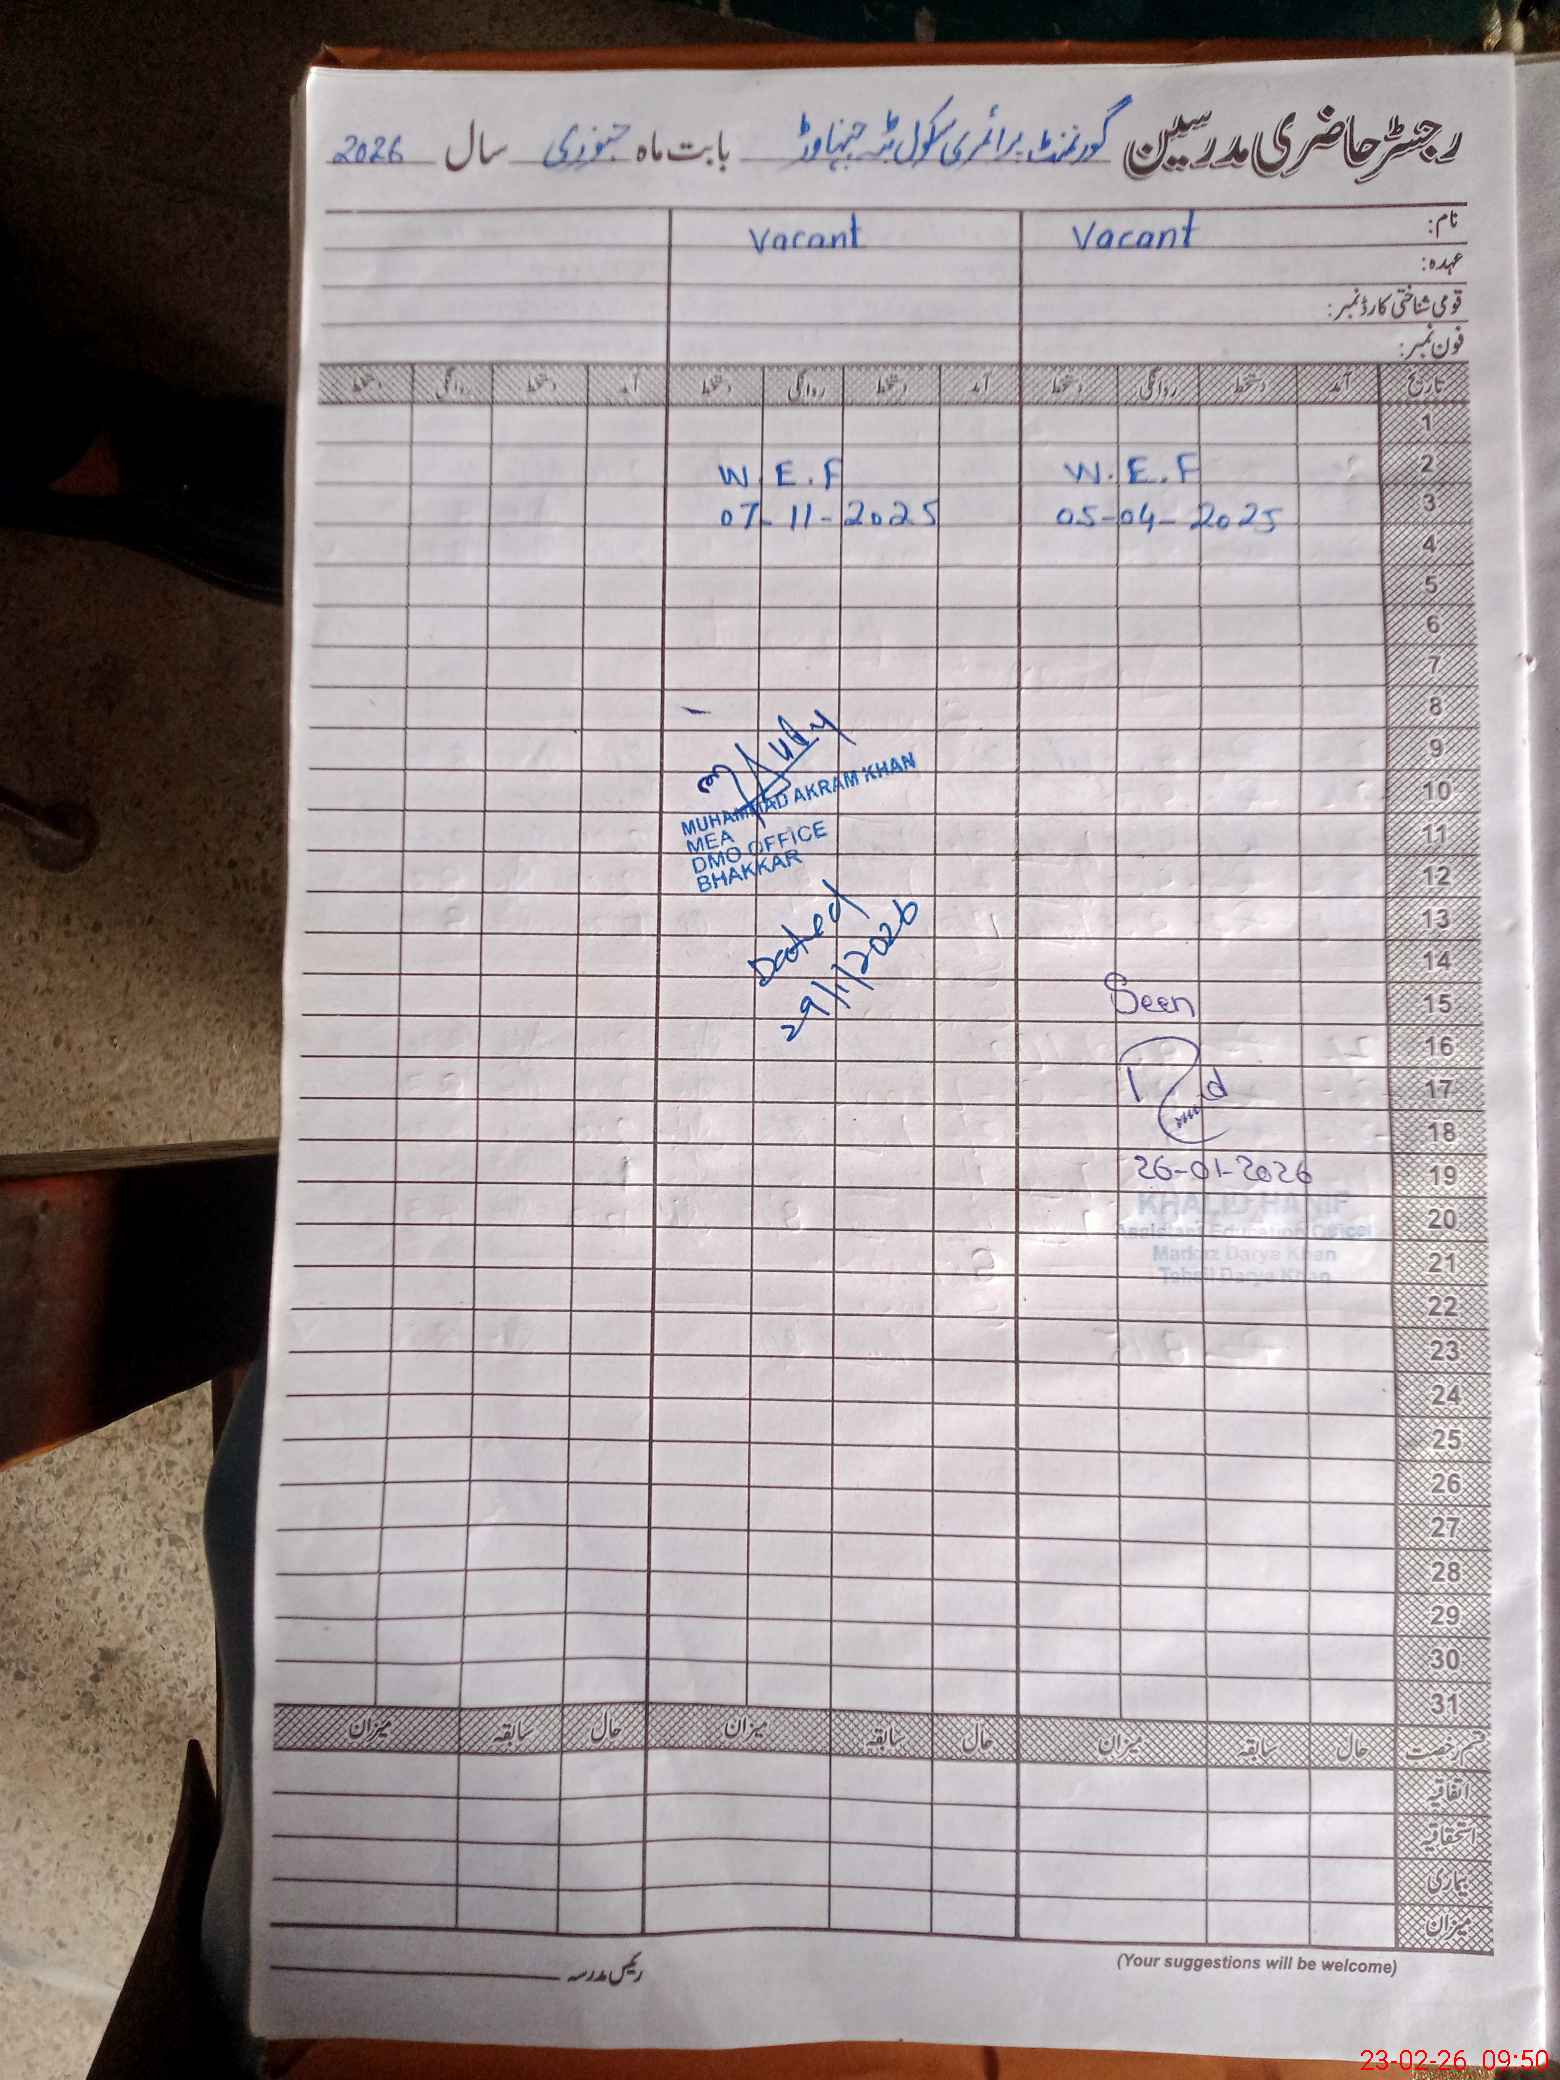 رجسٹر حاضری مدرسین گورنمنٹ پرائمری سکول بابت ماہ جنوری سال 2026
نام: Vacant Vacant
عہدہ:
قومی شناختی کارڈ نمبر:
فون نمبر:
تاریخ آمد دستخط روانگی دستخط آمد دستخط روانگی دستخط آمد دستخط روانگی دستخط
1
2 W.E.F W.E.F
3 05-04-2025 07-11-2025
4
5
6
7
8
9
10
11
12
13
14
15
16
17
18
19
20
21
22
23
24
25
26
27
28
29
30
31
MUHAMMAD AKRAM KHAN
MEA
DMO OFFICE
BHAKKAR
Dated
29/1/2026
Seen
26-01-2026
KHALID HANIF
Assistant Education Officer
Markaz Darya Khan
Tehsil Darya Khan
قسم رخصت حال سابقہ میزان حال سابقہ میزان حال سابقہ میزان
اتفاقیہ
استحقاقیہ
بیماری
میزان
(Your suggestions will be welcome)
رئیس مدرسہ
23-02-26 09:50